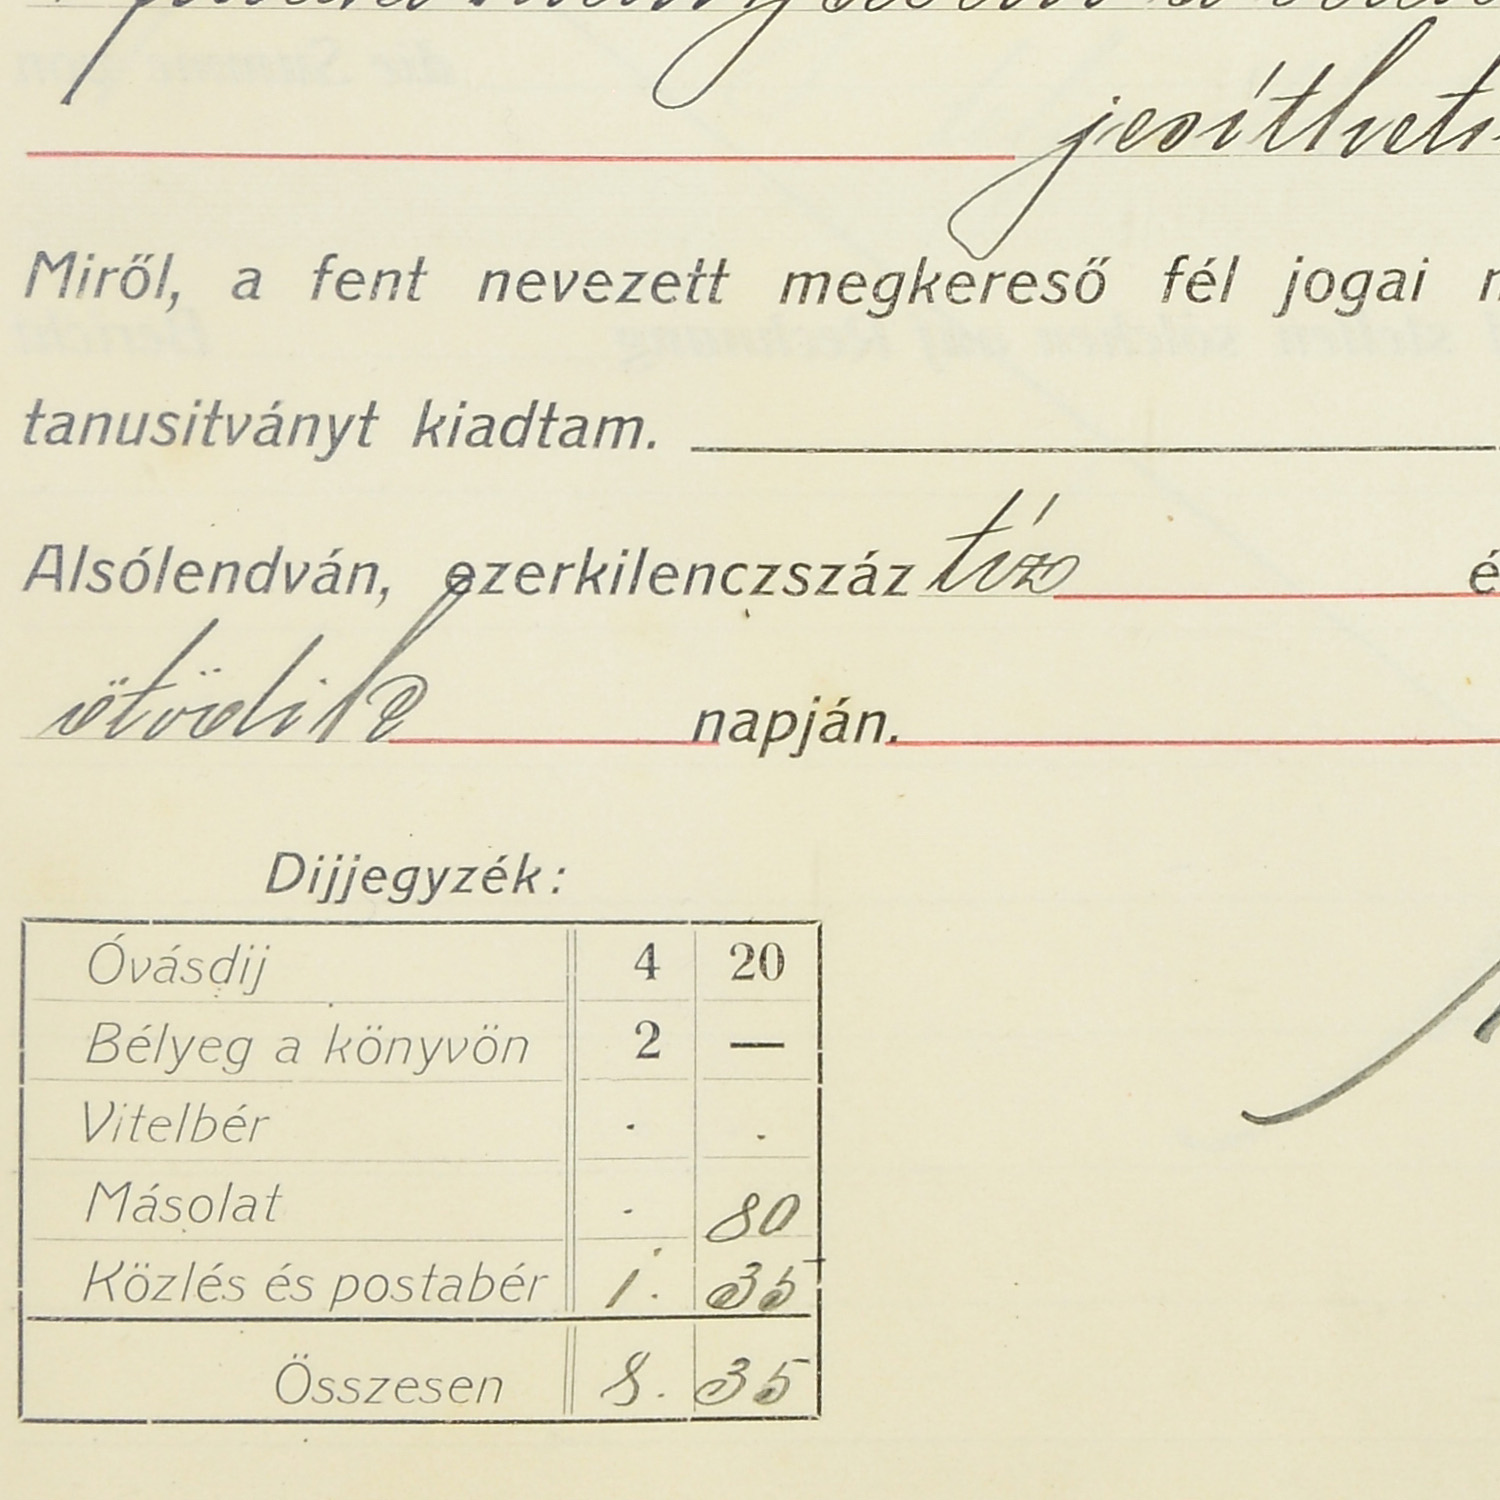 jesíthet
Miről, a fent nevezett megkereső fél jogai
tanusitványt kiadtam.
Alsólendván, ezerkilenczszáz tíz é
ötödik napján.
Dijjegyzék:
Óvásdij 4 20
Bélyeg a könyvön 2 —
Vitelbér . .
Másolat . 80
Közlés és postabér 1. 35
Összesen 8. 35